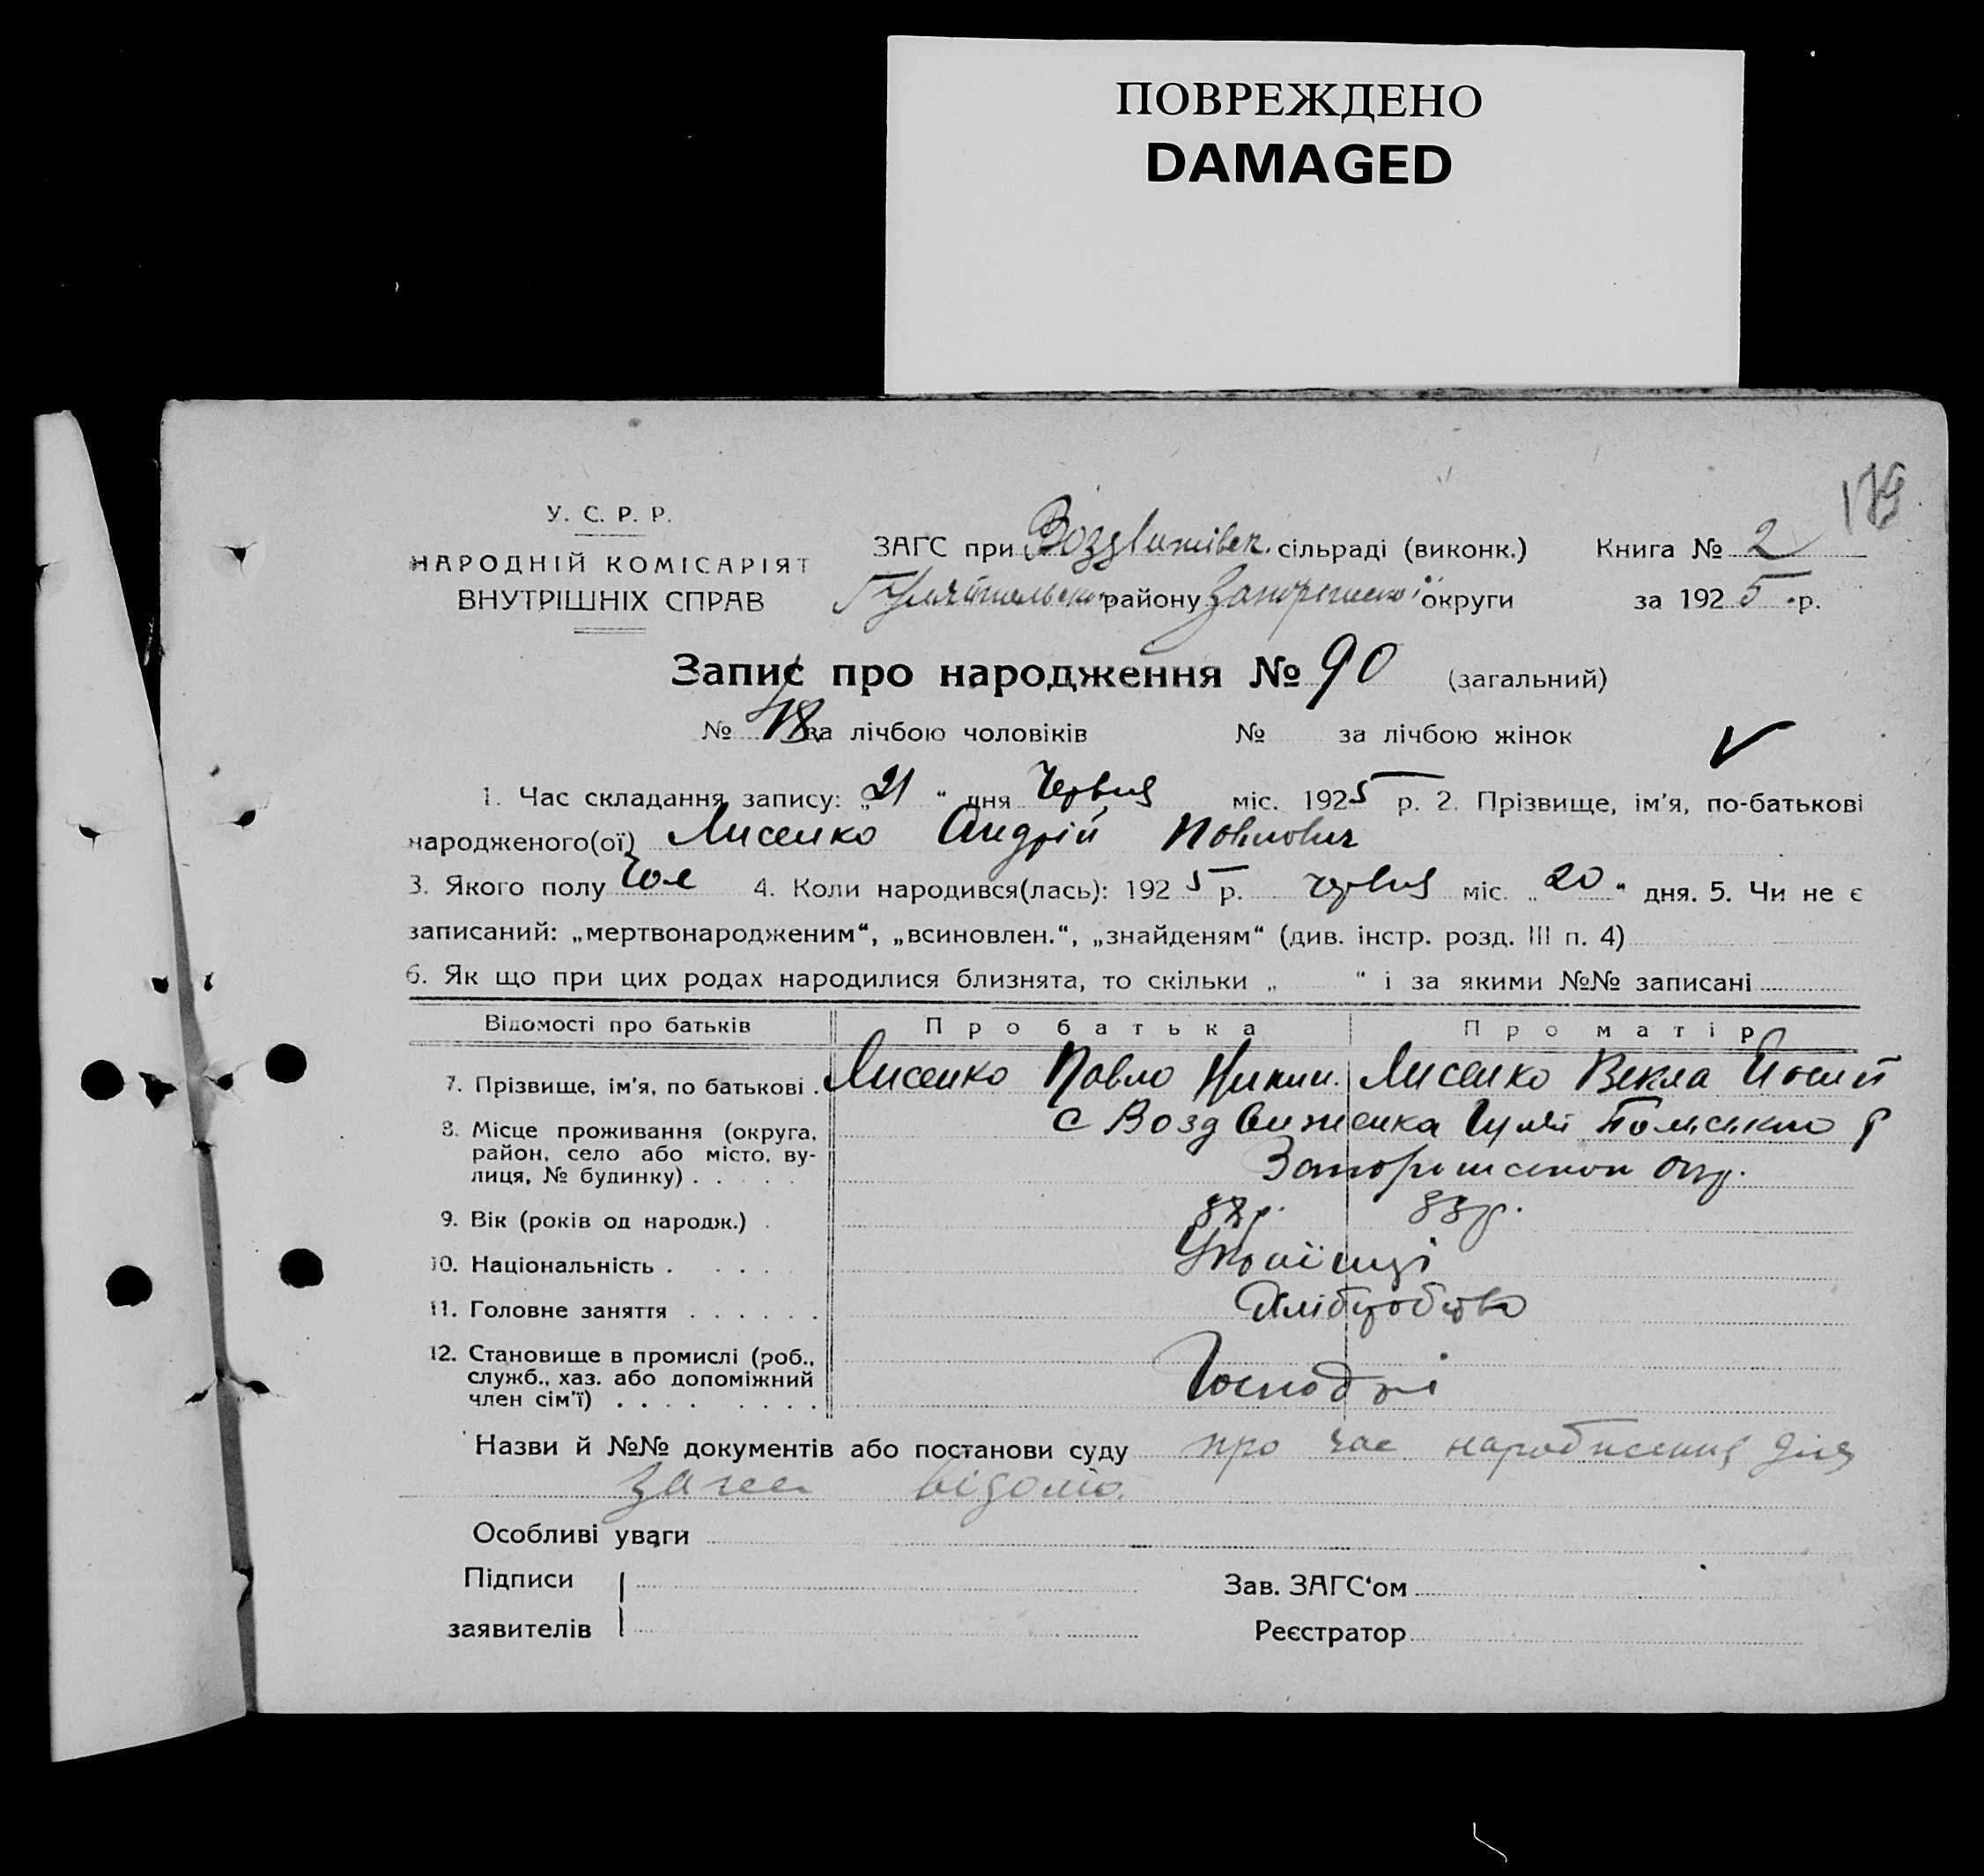 ПОВРЕЖДЕНО
DAMAGED
179
У. С. Р. Р.
НАРОДНІЙ КОМІСАРІЯТ
ВНУТРІШНІХ СПРАВ
ЗАГС при Воздвижівск. сільраді (виконк.) Книга № 2
району Запорізької округи за 1925 р.
Запис про народження № 90 (загальний)
№ 48 за лічбою чоловіків № за лічбою жінок
1. Час складання запису: „21“ дня Червня міс. 1925 р. 2. Прізвище, ім'я, по-батькові
народженого(ої) Лисенко Андрій Павлович
3. Якого полу Чол 4. Коли народився(лась): 1925 р. червня міс. „20“ дня. 5. Чи не є
записаний: „мертвонародженим“, „всиновлен.“, „знайденям“ (див. інстр. розд. III п. 4)
6. Як що при цих родах народилися близнята, то скільки „ “ і за якими №№ записані
Відомості про батьків Про батька Про матір
7. Прізвище, ім'я, по батькові . Лисенко Павло Никип. Лисенко Векла Йосип
8. Місце проживання (округа, с Воздвиженка Гуляй Польського р
район, село або місто, ву-
лиця, № будинку) . . . . . Запоріжської окр.
9. Вік (років од народж.) . 38р. 33р.
10. Національність . . . . . Українці
11. Головне заняття . . . . . . Хліборобство
12. Становище в промислі (роб.,
служб., хаз. або допоміжний
член сім'ї) . . . . . . . . Господарі
Назви й №№ документів або постанови суду про час народження для
загса відомо.
Особливі уваги
Підписи
заявителів
Зав. ЗАГС'ом
Реєстратор